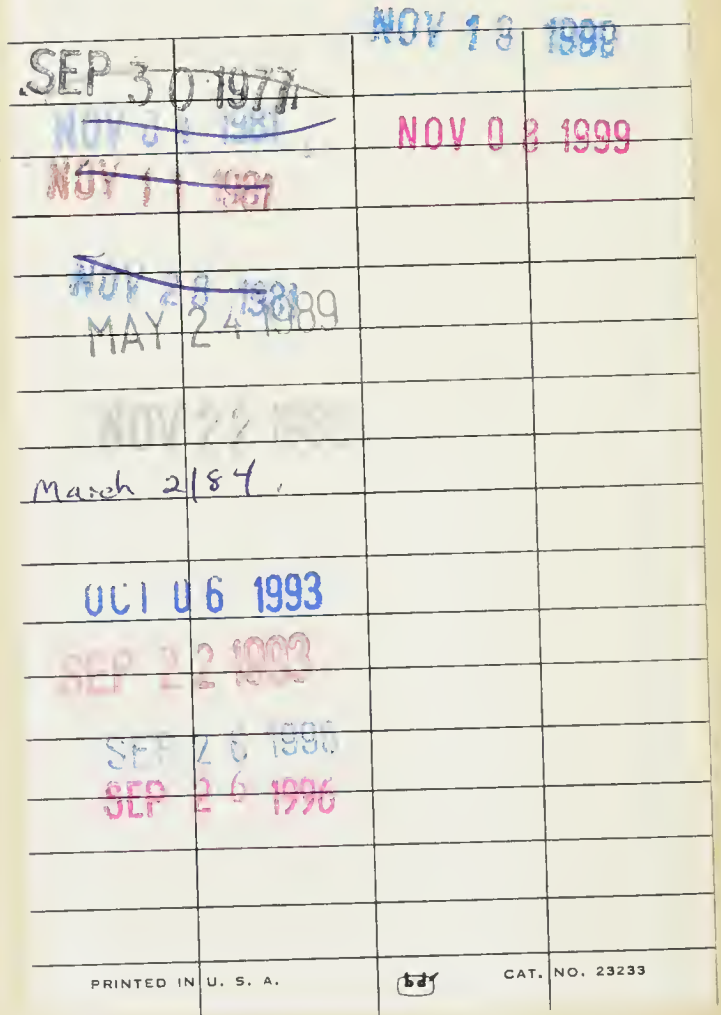 SEP 30 1977
NOV 1981
NOV 11 1981
NOV 28 1981
MAY 24 1989
NOV 22
March 2/84.
OCT 06 1993
SEP 22 1993
SEP 26 1996
SEP 26 1996
NOV 1999
NOV 08 1999
PRINTED IN U. S. A.
bd
CAT. NO. 23233